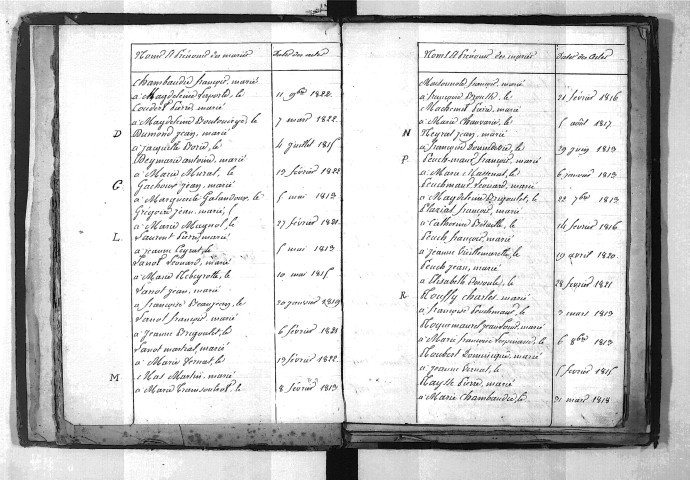 Noms et Prénoms des mariés Dates des actes
Chambaudie françois, marié
a Magdeleine Laporte, le 11 9bre 1822
Coudert Pierre, marié
a Magdeleine le 7 mars 1822
D Dumond jean, marié
a jacquette le 4 juillet 1815
Deymarie antoine, marié
a Marie Murat, le 19 février 1822
G Gachour jean, marié
a Marguerite Galandoux, le 5 mai 1813
Grégoire jean, marié,
a Marie Magnol, le 27 février 1821
L Laurent Pierre, marié
a jeanne Peyrat, le 5 mai 1813
Lanot Léonard, marié
a Marie le 10 mai 1815
Lanot jean, marié
a françoise Beaujean, le 20 janvier 1819
Lanot françois, marié
a jeanne Brigoulet, le 6 février 1821
Lanot martial, marié
a Marie Vernat, le 19 février 1822
M Mas Martin, marié
a Marie le 8 février 1813
Noms et Prénoms des mariés Dates des Actes
françois, marié
a françoise le 21 février 1816
Pierre, marié
a Marie le 5 août 1817
N Neyrat jean, marié
a françoise le 29 juin 1813
P Peuch-maur françois, marié
a Marie le 6 janvier 1813
Peuchmaur Léonard, marié
a Magdeleine Brigoulet, le 22 7bre 1813
françois, marié
a Catherine le 14 février 1816
Peuch françois, marié
a jeanne Vieillemarette, le 19 avril 1820
Peuch jean, marié
a Elisabeth le 28 février 1821
R Rouffy charles, marié
a françoise Peuchmaur, le 3 mars 1813
Roquemaurel jean Louis, marié
a Marie françoise le 6 8bre 1813
Roubert Dominique, marié
a jeanne Vernat, le 5 février 1815
Pierre, marié
a Marie Chambaudie, le 31 mars 1818